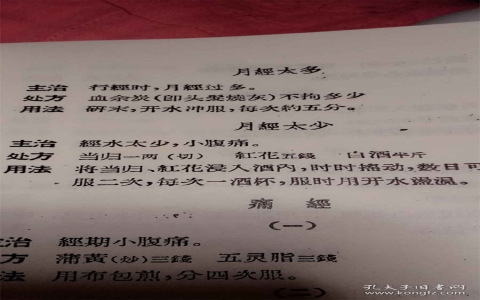 月經太多
主治 行經时，月經过多。
处方 血余炭（即头髮燒灰）不拘多少
用法 研末，开水冲服，每次約五分。
月經太少
主治 經水太少，小腹痛。
处方 当归一两（切） 紅花五錢 白酒半斤
用法 将当归、紅花浸入酒内，时时搖动，数日可
服二次，每次一酒杯，服时用开水燙温。
痛經
（一）
主治 經期小腹痛。
方 蒲黄（炒）三錢 五灵脂三錢
法 用布包煎，分四次服。
（二）
孔夫子旧书网
www.kongfz.com